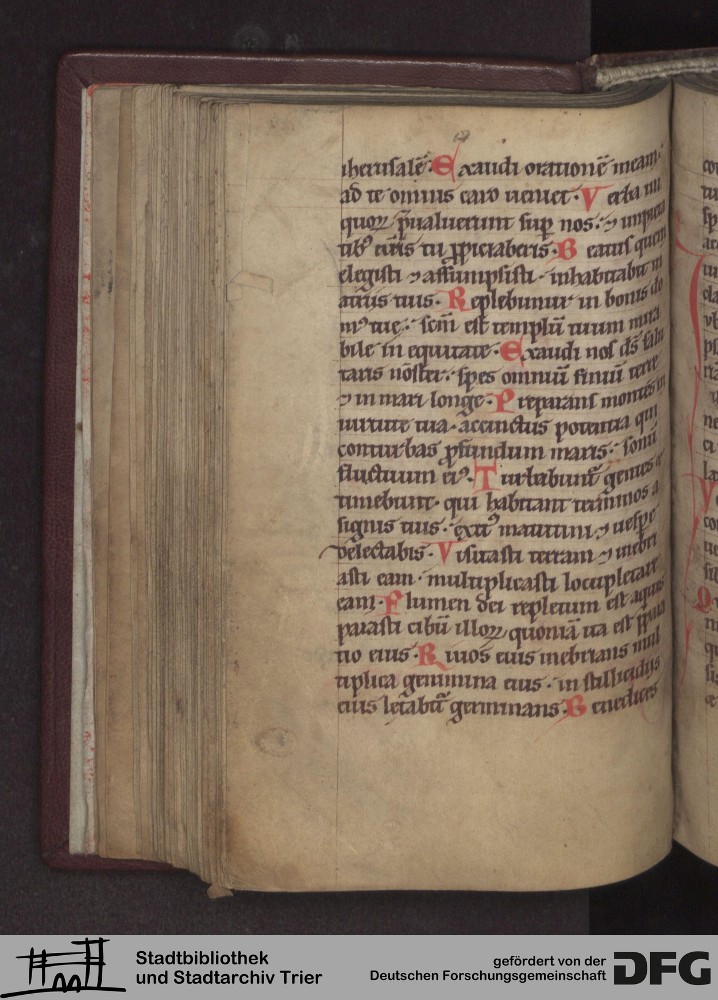 iherusalē. Exaudi orationē meam.
ad te omnis caro ueniet. Verba ini
quoꝝ p̄ualuerunt sup nos. ⁊ impieta
tibꝰ nr̄is tu ꝓpiciaberis. Beatus quem
elegisti ⁊ assumpsisti. inhabitabit in
atriis tuis. Replebimur in bonis do
mꝰ tue. scm̄ est templū tuum mira
bile in equitate. Exaudi nos ds̄ salu
taris noster. spes omniū finiū terre
⁊ in mari longe. Preparans montes in
uirtute tua. accinctus potentia qui
conturbas ꝓfundum maris. sonū
fluctuum eiꝰ. Turbabunt̄ gentes ⁊
timebunt. qui habitant terminos a
signis tuis. exitꝰ matutini ⁊ uespe
delectabis. Visitasti terram ⁊ inebri
asti eam. multiplicasti locupletare
eam. Flumen dei repletum est aquis
parasti cibū illoꝝ quoniā ita est p̄para
tio eius. Riuos eius inebrians mul
tiplica genimina eius. in stillicidijs
eius letabit̄ germinans. Benedices
Stadtbibliothek
und Stadtarchiv Trier
gefördert von der
Deutschen Forschungsgemeinschaft
DFG